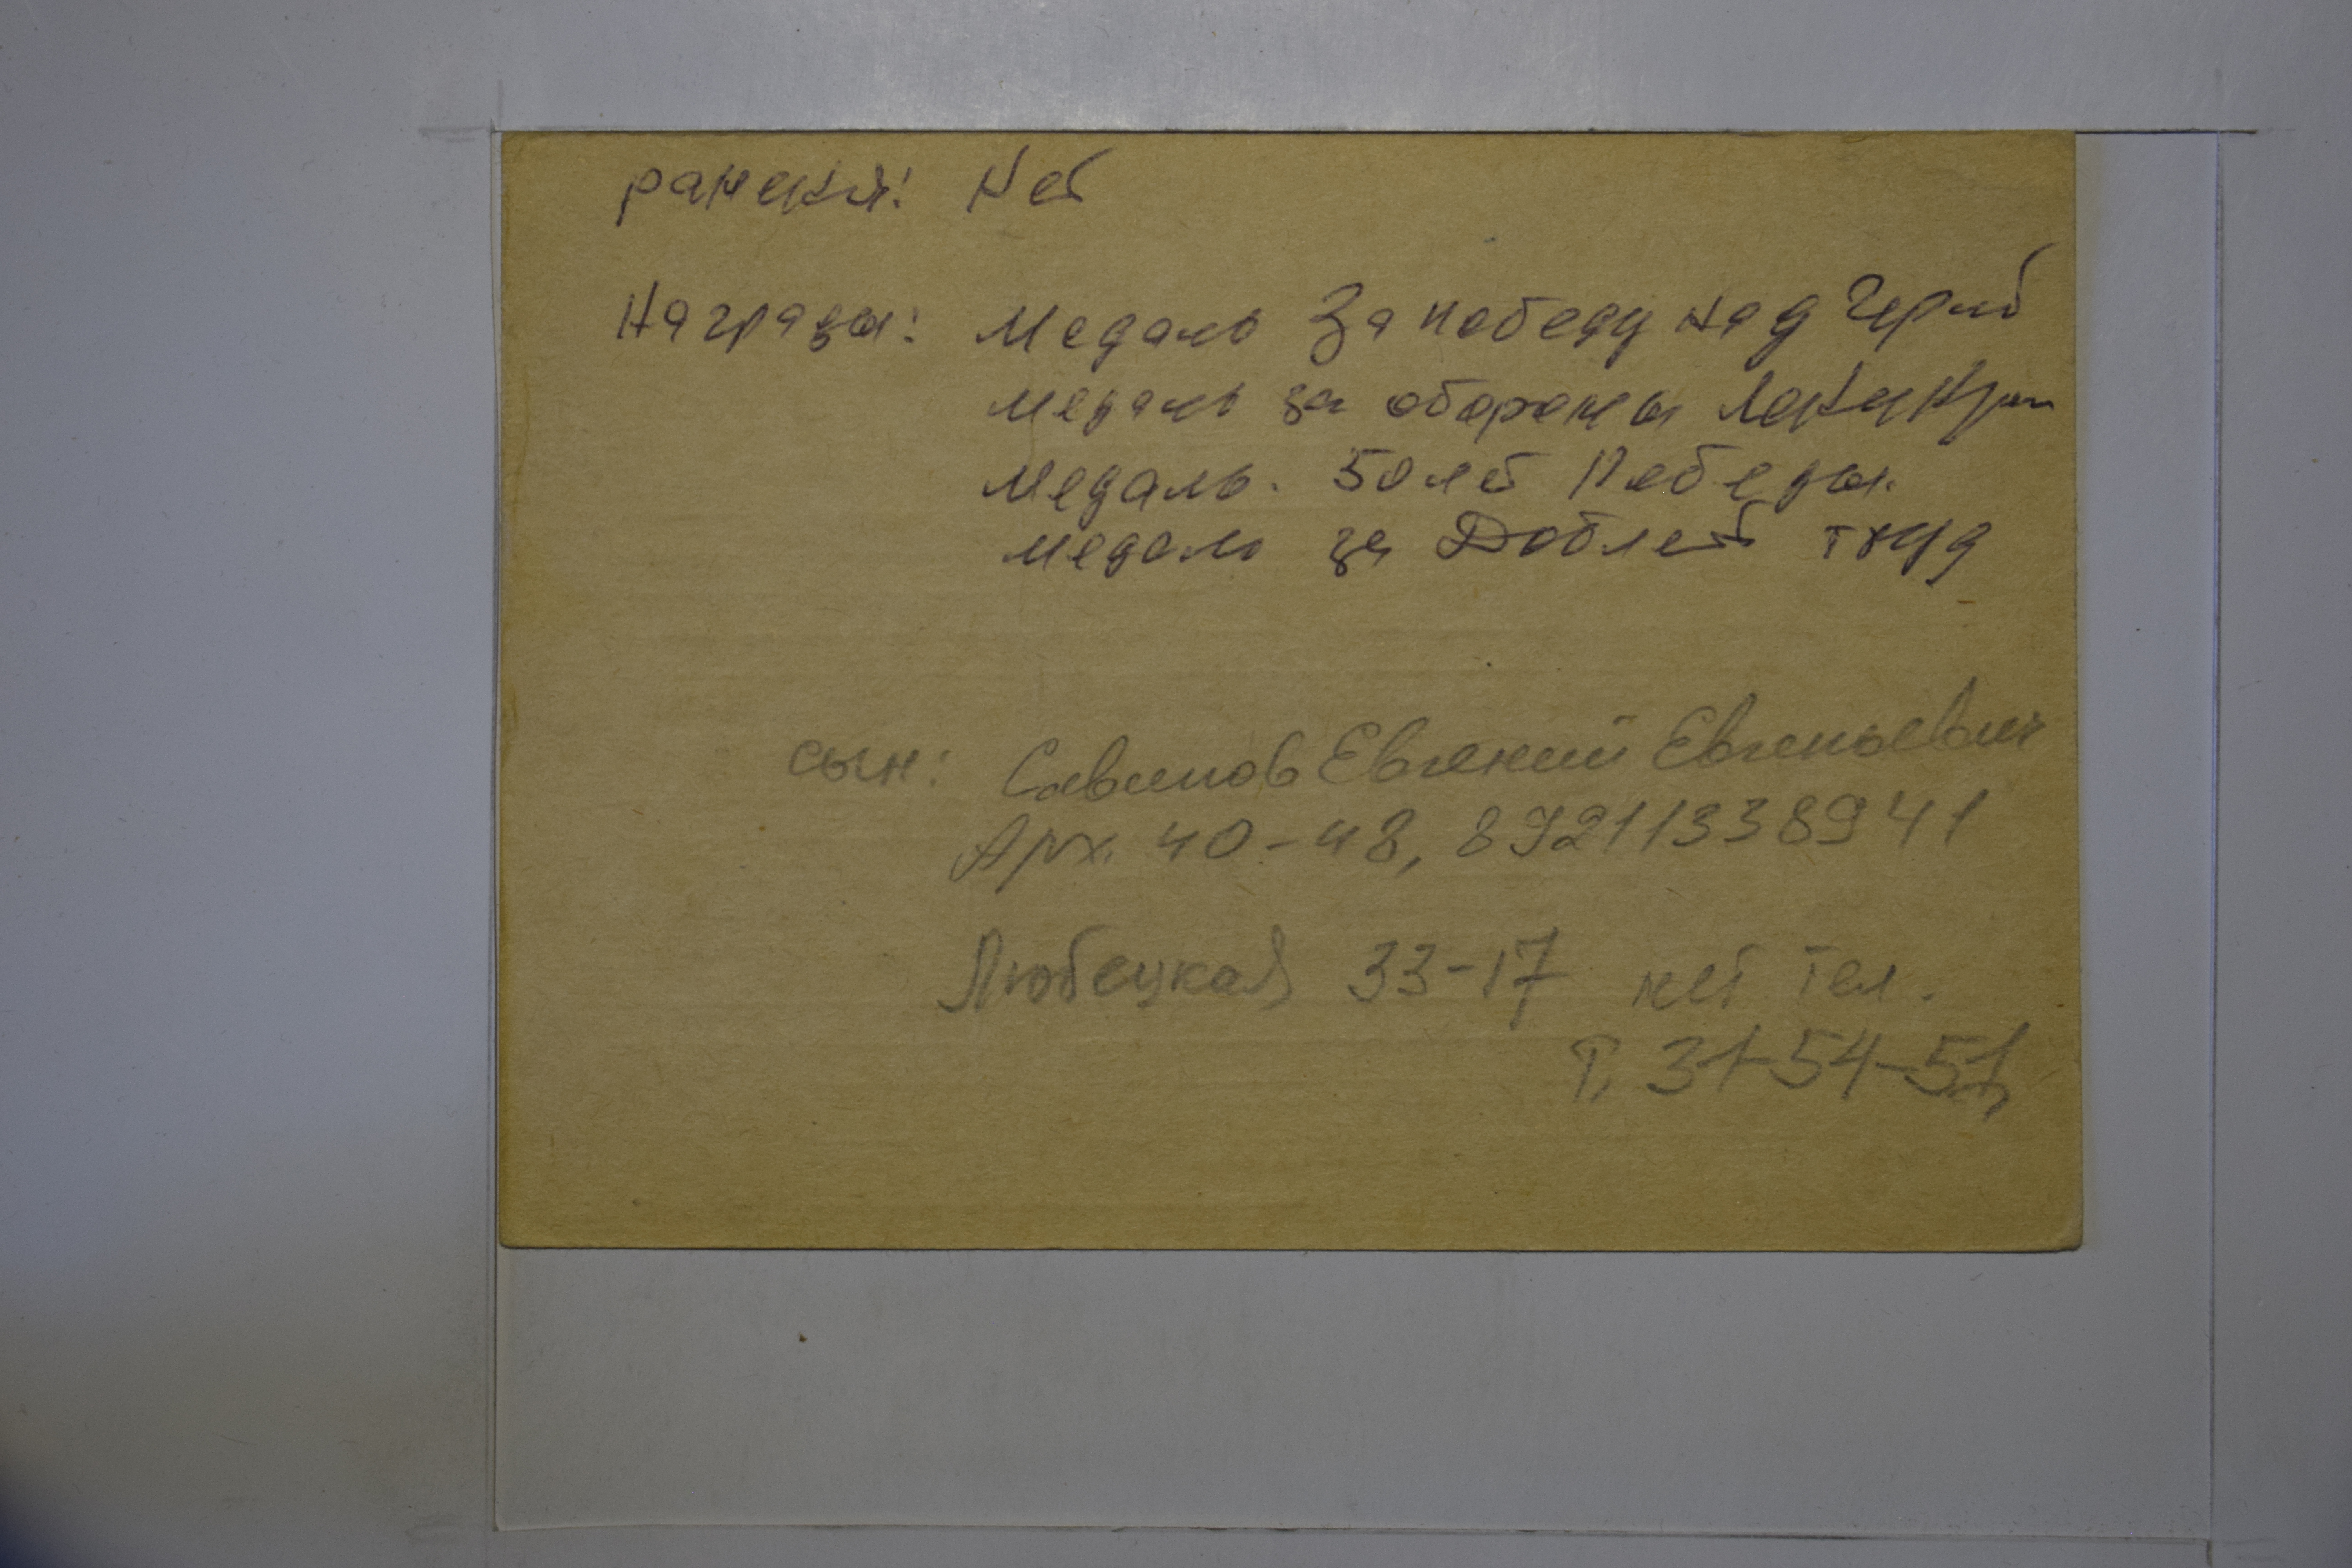 ранения: Нет
Награды: Медаль За победу над Герм
медаль за обороны Ленингр
медаль. 50 лет Победы.
медаль за Доблест труд
сын: Савинов Евгений Евгеньевич
Арх. 40-48, 89211338941
Любецкая 33-17 нет тел.
Т. 31-54-51